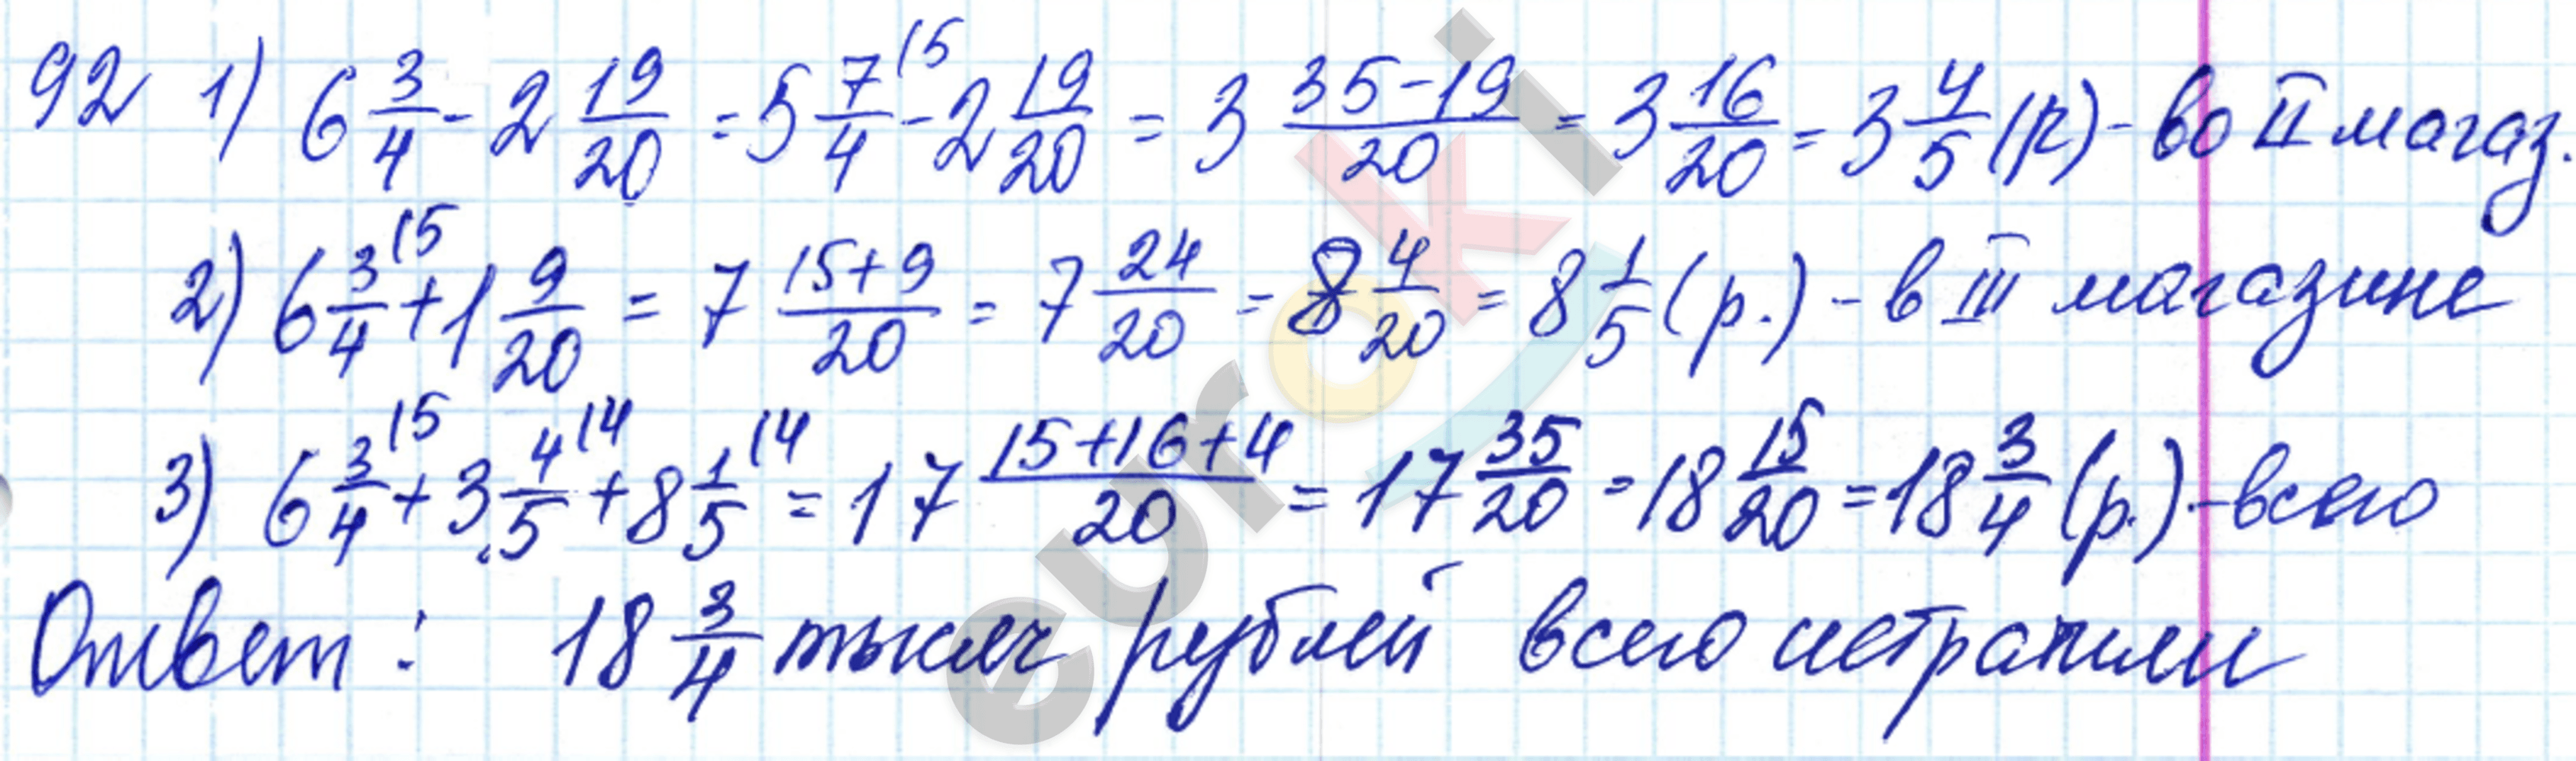 92 1) 6 3/4 - 2 19/20 = 5 7/4 (5 - 2 19/20 = 3 35-19/20 = 3 16/20 = 3 4/5 (р) - во II магаз.
2) 6 3/4 (5 + 1 9/20 = 7 15+9/20 = 7 24/20 = 8 4/20 = 8 1/5 (р.) - в III магазине
3) 6 3/4 (5 + 3 4/5 (4 + 8 1/5 (4 = 17 15+16+4/20 = 17 35/20 = 18 15/20 = 18 3/4 (р.) - всего
Ответ: 18 3/4 тысяч рублей всего истратили
euroki